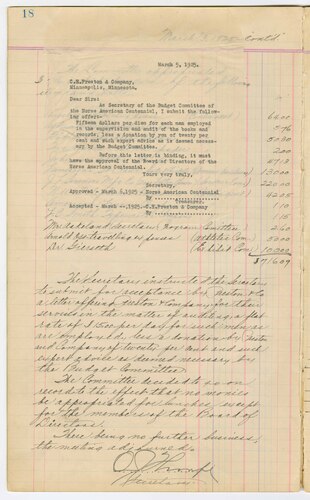 18
March 5, 1925.
C.H.Preston & Company,
Minneapolis, Minnesota.
Dear Sirs:
As Secretary of the Budget Committee of
the Norse American Centennial, I submit the follow-
ing offer:-
Fifteen dollars per diem for each man employed
in the supervision and audit of the books and
records, less a donation by you of twenty per
cent and such expert advice as is deemed neces-
sary by the Budget Committee.
Before this letter is binding, it must
have the approval of the Board of Directors of the
Norse American Centennial.
Yours very truly,
Secretary.
Approved - March 6, 1925 - Norse American Centennial
By
Treasurer.
Accepted - March --, 1925 - C.H.Preston & Company
By
Committee
The Secretary instructed the Secretary
to submit for acceptance by Preston & Co
a letter offering Preston & Company for their
services in the matter of auditing a flat
rate of per day for such men as
are employed, less a donation by Preston
and Company of twenty per cent and such
expert advise as deemed necessary by
the Budget Committee.
The Committee decided to go on
record to the effect that no monies
be appropriated for lunches, except
for the members of the Board of
Directors.
There being no further business,
the meeting adjourned.
Secretary